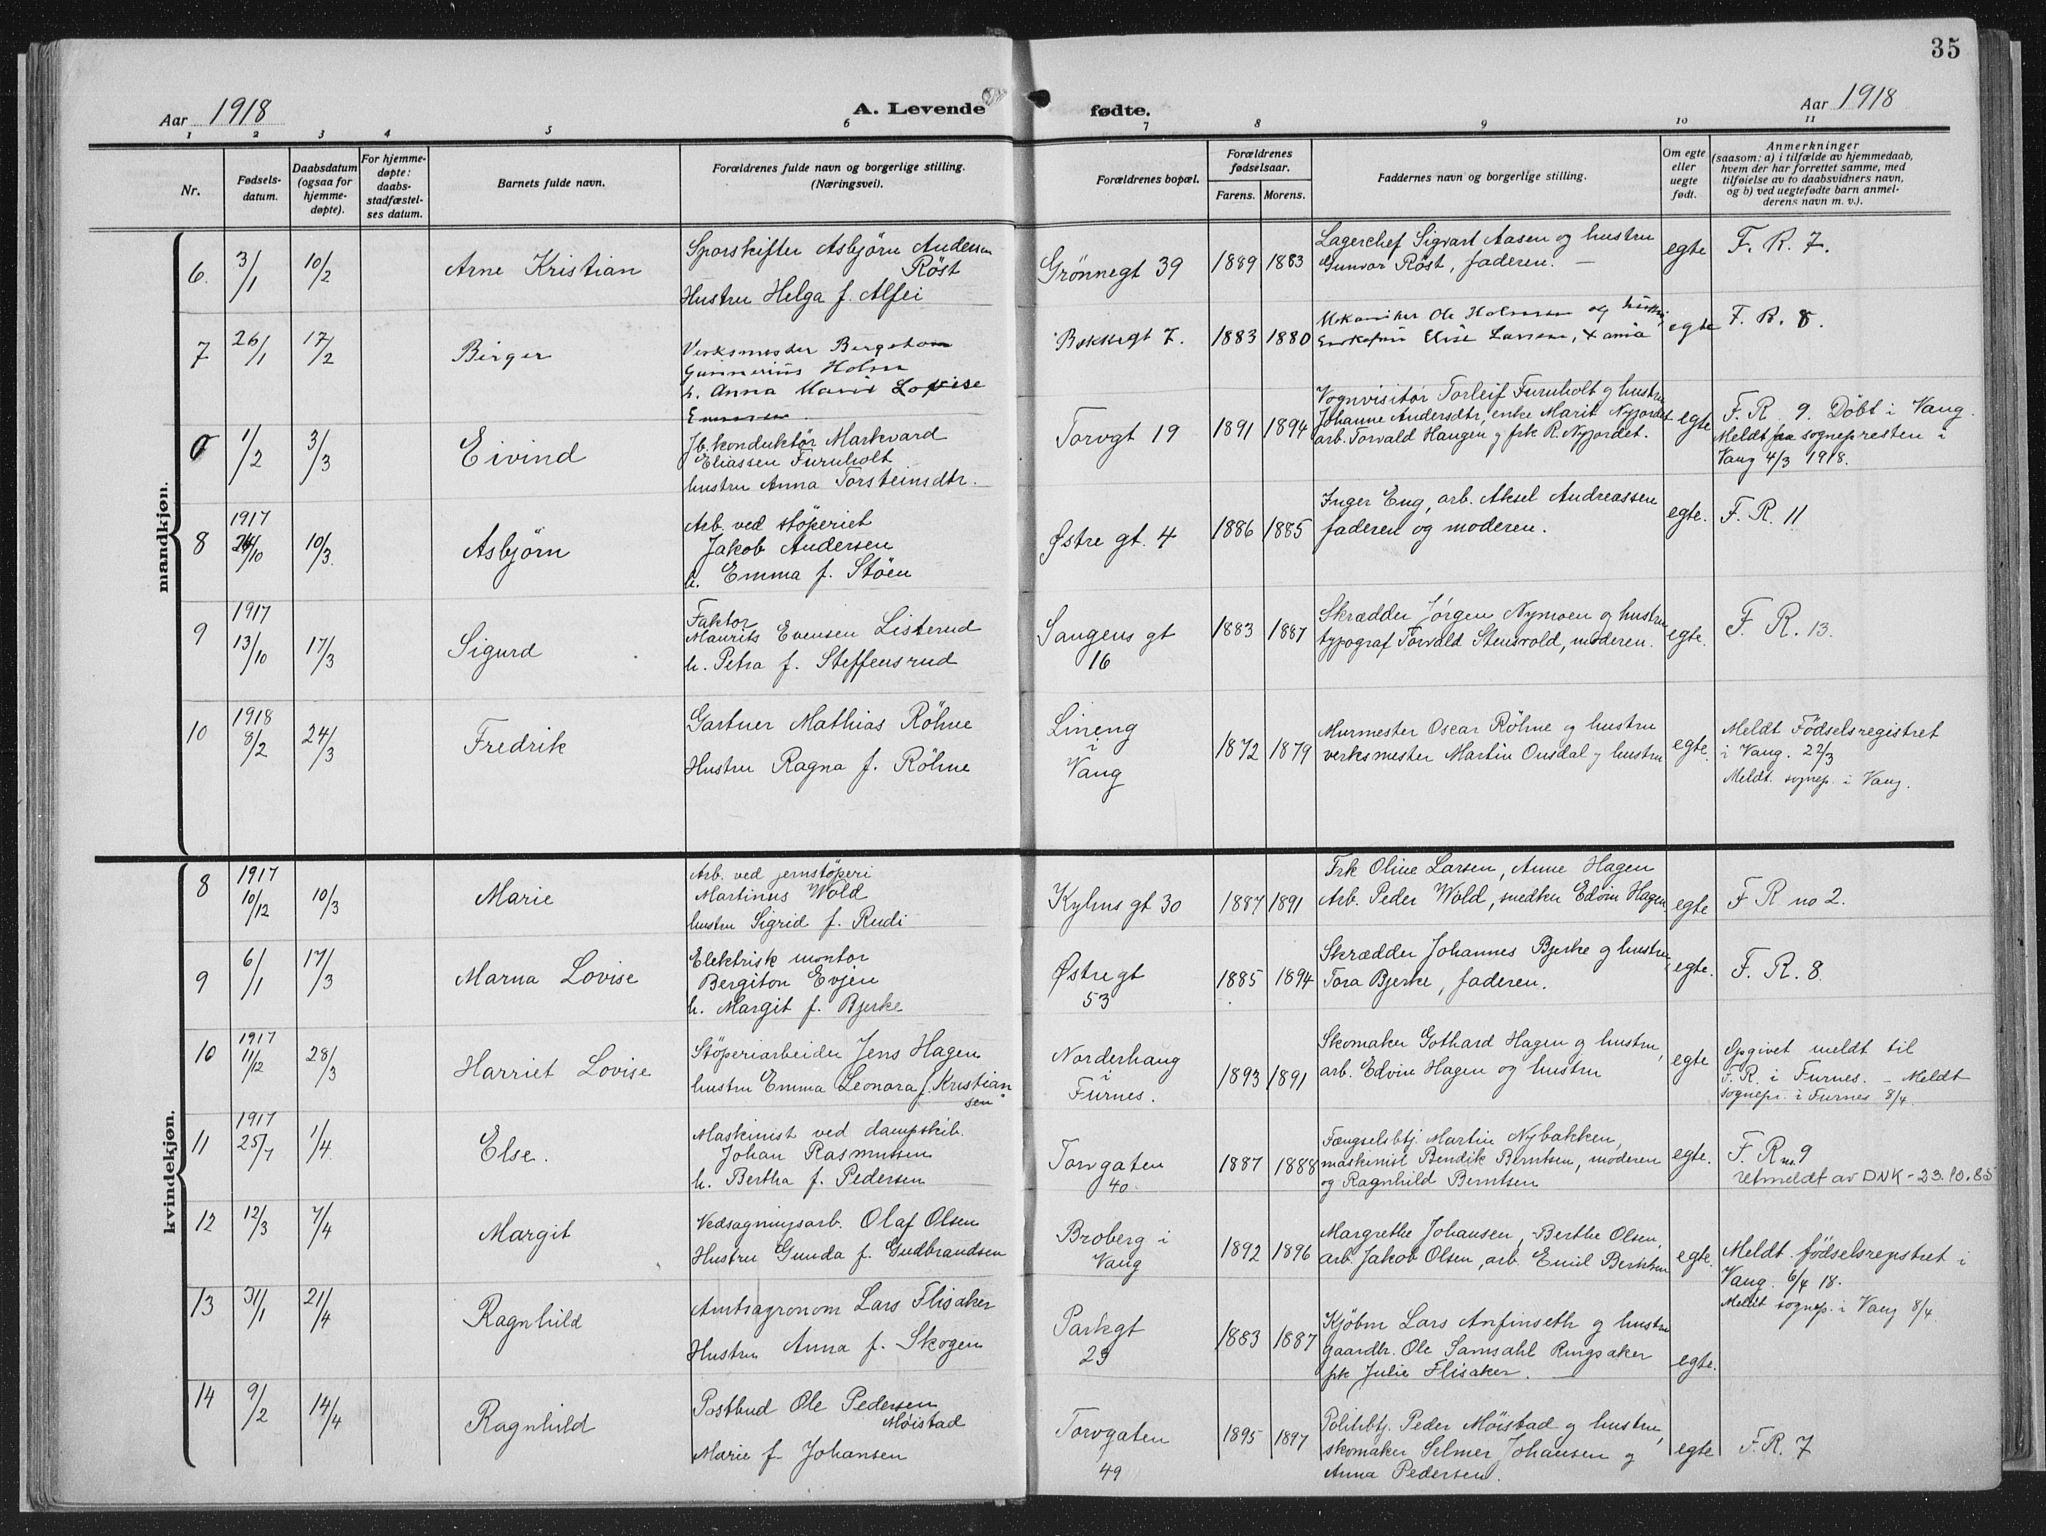 35
Aar 1918
A. Levende fødte.
Aar 1918
1 2 3 4 5 6 7 8 9 10 11
Nr.
Fødsels-
datum.
Daabsdatum
(ogsaa for
hjemme-
døpte).
For hjemme-
døpte:
daabs-
stadfæstel-
ses datum.
Barnets fulde navn.
Forældrenes fulde navn og borgerlige stilling.
(Næringsvei).
Forældrenes bopæl.
Forældrenes
fødselsaar.
Farens. Morens.
Faddernes navn og borgerlige stilling.
Om egte
eller
uegte
født.
Anmerkninger
(saasom: a) i tilfælde av hjemmedaab,
hvem der har forrettet samme, med
tilføielse av to daabsvidners navn,
og b) ved uegtefødte barn anmel-
derens navn m. v.).
mandkjøn.
6. 3/1 10/2 Arne Kristian
Sporskifter Asbjørn Andersen
Röst
Hustru Helga f. Alfei
Grønnegt 39 1889 1883
Lagerchef Sigvart Aasen og hustru
Gunvor Röst, faderen. —
egte F. R. 7.
7 26/1 17/2 Birger
Verksmester Bergstom
Gunnerius Holm
h. Anna Marie Lovise
Bekkegt 7. 1883 1880
Mekaniker Ole Holmsen og hustru,
Elise Larsen,
egte F. R. 8.
1/2 3/3 Eivind
Jb. konduktør Markvard
Eliassen Furuholt
hustru Anna Torsteinsdtr.
Torvgt 19 1891 1894
Vognvisitør Torleif Furuholt og hustru
Johanne Andersdtr, enke Marit Nyjordet
arb. Torvald Haugen og frk R. Nyjordet.
egte F. R. 9. Döbt i Vang.
Meldt fra sognepresten i
Vang 4/3 1918.
8 1917 24/10 10/3. Asbjörn
Arb. ved støperiet
Jakob Andersen
h. Emma f. Stöen
Østre gt. 4 1886 1885
Inger Eng, arb. Aksel Andreassen
faderen og moderen.
egte. F. R. 11
9 1917 13/10 17/3 Sigurd
Faktor
Maurits Evensen Listerud
h. Petra f. Steffensrud
Gaugens gt
16
1883 1887
Skrædder Jørgen Nymoen og hustru
typograf Torvald Stensvold, moderen.
egte. F. R. 13.
10 1918 8/2 24/3 Fredrik
Gartner Mathias Röhne
Hustru Ragna f. Röhne
Lineng
i
Vang
1872 1879
Murmester Oscar Röhne og hustru
verksmester Martin Onsdal og hustru
egte. Meldt Födselsregistret
i Vang. 22/3
Meldt. sognep. i Vang.
kvindekjøn.
8 1917 10/12 10/3 Marie
Arb. ved jernstöperi
Martinus Wold
hustru Sigrid f. Rudi
Kyhns gt 30 1887 1891
Frk Oline Larsen, Anne Hagen
Arb. Peder Wold, snedker Edvin Hagen
egte F R no 2.
9 6/1 17/3 Marna Lovise
Elektrisk montør
Bergiton Evjen
h. Margit f. Bjerke
Østre gt
53
1885 1894
Skrædder Johannes Bjerke og hustru,
Tora Bjerke, faderen.
egte. F. R. 8
10 1917 11/12 28/3 Harriet Lovise
Stöperiarbeider Jens Hagen
hustru Emma Leonora f. Kristian
sen"
Norderhaug
i
Furnes.
1893 1891
Skomaker Gothard Hagen og hustru,
arb. Edvin Hagen og hustru
egte Opgivet meldt til
F. R. i Furnes. – Meldt
sognepr. i Furnes 8/4.
11 1917 25/7 1/4 Else.
Maskinist ved dampskib.
Johan Rasmussen
h. Bertha f. Pedersen
Torvgaten
40.
1887 1888
Fængselsbtj. Martin Nybakken,
maskinist Bendik Berntsen, moderen
og Ragnhild Berntsen
egte. F. R no. 9
retmeldt av DNK - 23.10.85
12 12/3 7/4 Margit
Vedsagningsarb. Olaf Olsen
Hustru Gunda f. Gudbrandsen
Broberg i
Vang
1892 1896
Margrethe Johansen, Berthe Olsen,
arb. Jakob Olsen, arb. Emil Berntsen
egte. Meldt fødselsregistret i
Vang. 6/4 18.
Meldt sognep. i Vang 8/4.
13 31/1 21/4 Ragnhild
Amtsagronom Lars Flisaker
Hustru Anna f. Skogen
Parkgt
23
1883 1887
Kjöbm Lars Anfinseth og hustru
gaardbr. Ole Samsahl Ringsaker
frk Julie Flisaker. —
egte.
14 9/2 14/4 Ragnhild
Postbud Ole Pedersen
Möistad
Marie f. Johansen
Torvgaten
49
1895 1897
Politibtj. Peder Möistad og hustru,
skomaker Selmer Johansen og
Anna Pedersen.
egte F. R. 7